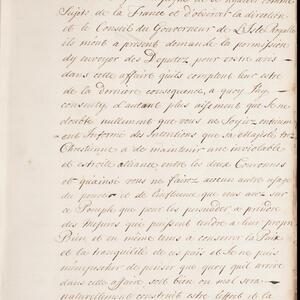 Sujets de la France et d'observer la direction
et le Conseil du Gouverneur de L'Isle Royalle
ils m'ont a present demandé la permission
d'y envoyer des Deputez pour votre avis
dans cette affaire qu'ils comptent leur estre
de la Derniere consequence, a quoy J'ay
consenty d'autant plus aisement que Je ne
doubte nullement que vous ne Soyiez entierem.
ent Informé des Intentions que sa Majesté tres
Chrestienne a de maintenir une inviolable
et estroite alliance entre les deux Couronnes
et qu'ainsi vous ne fairez aucun autre usage
du pouvoir et de l'influence que vous avez sur
ce Peuple que pour les persuader a prendre
des mesures qui puissent tendre a leur propre
Bien et en meme tems a conserver la Paix
et la tranquilité de ces païs et Je ne puis
m'empecher de penser que quoy qu'il arrive
dans cette affaire soit bien ou mal sera
naturellement construit estre l'effet de la